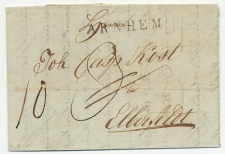 ARNHEM
Joh Casp Kost
10
in
Elberfeldt